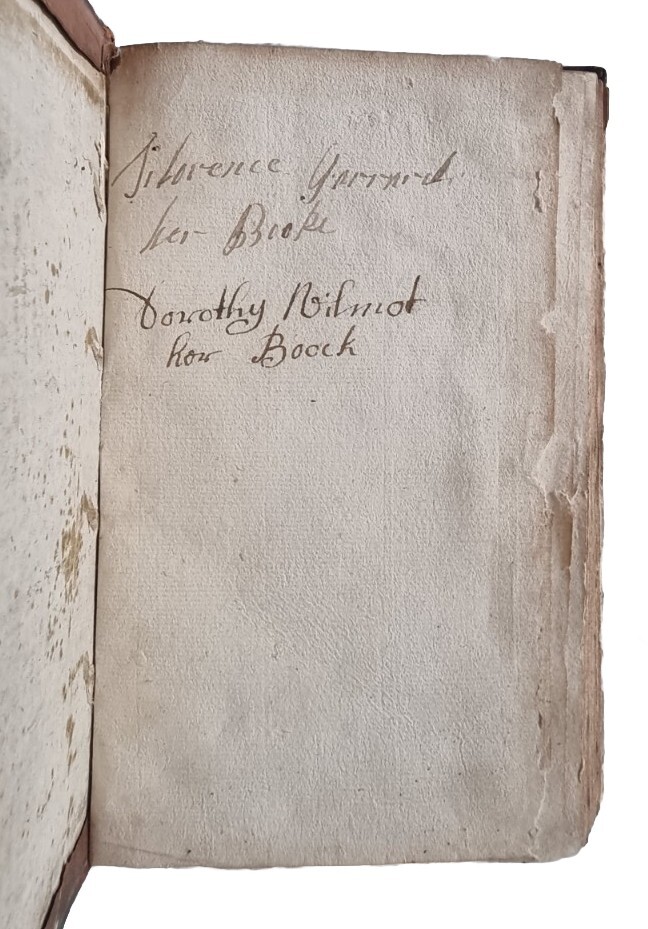 Florence Garrard
her Booke
Dorothy Wilmot
her Boock